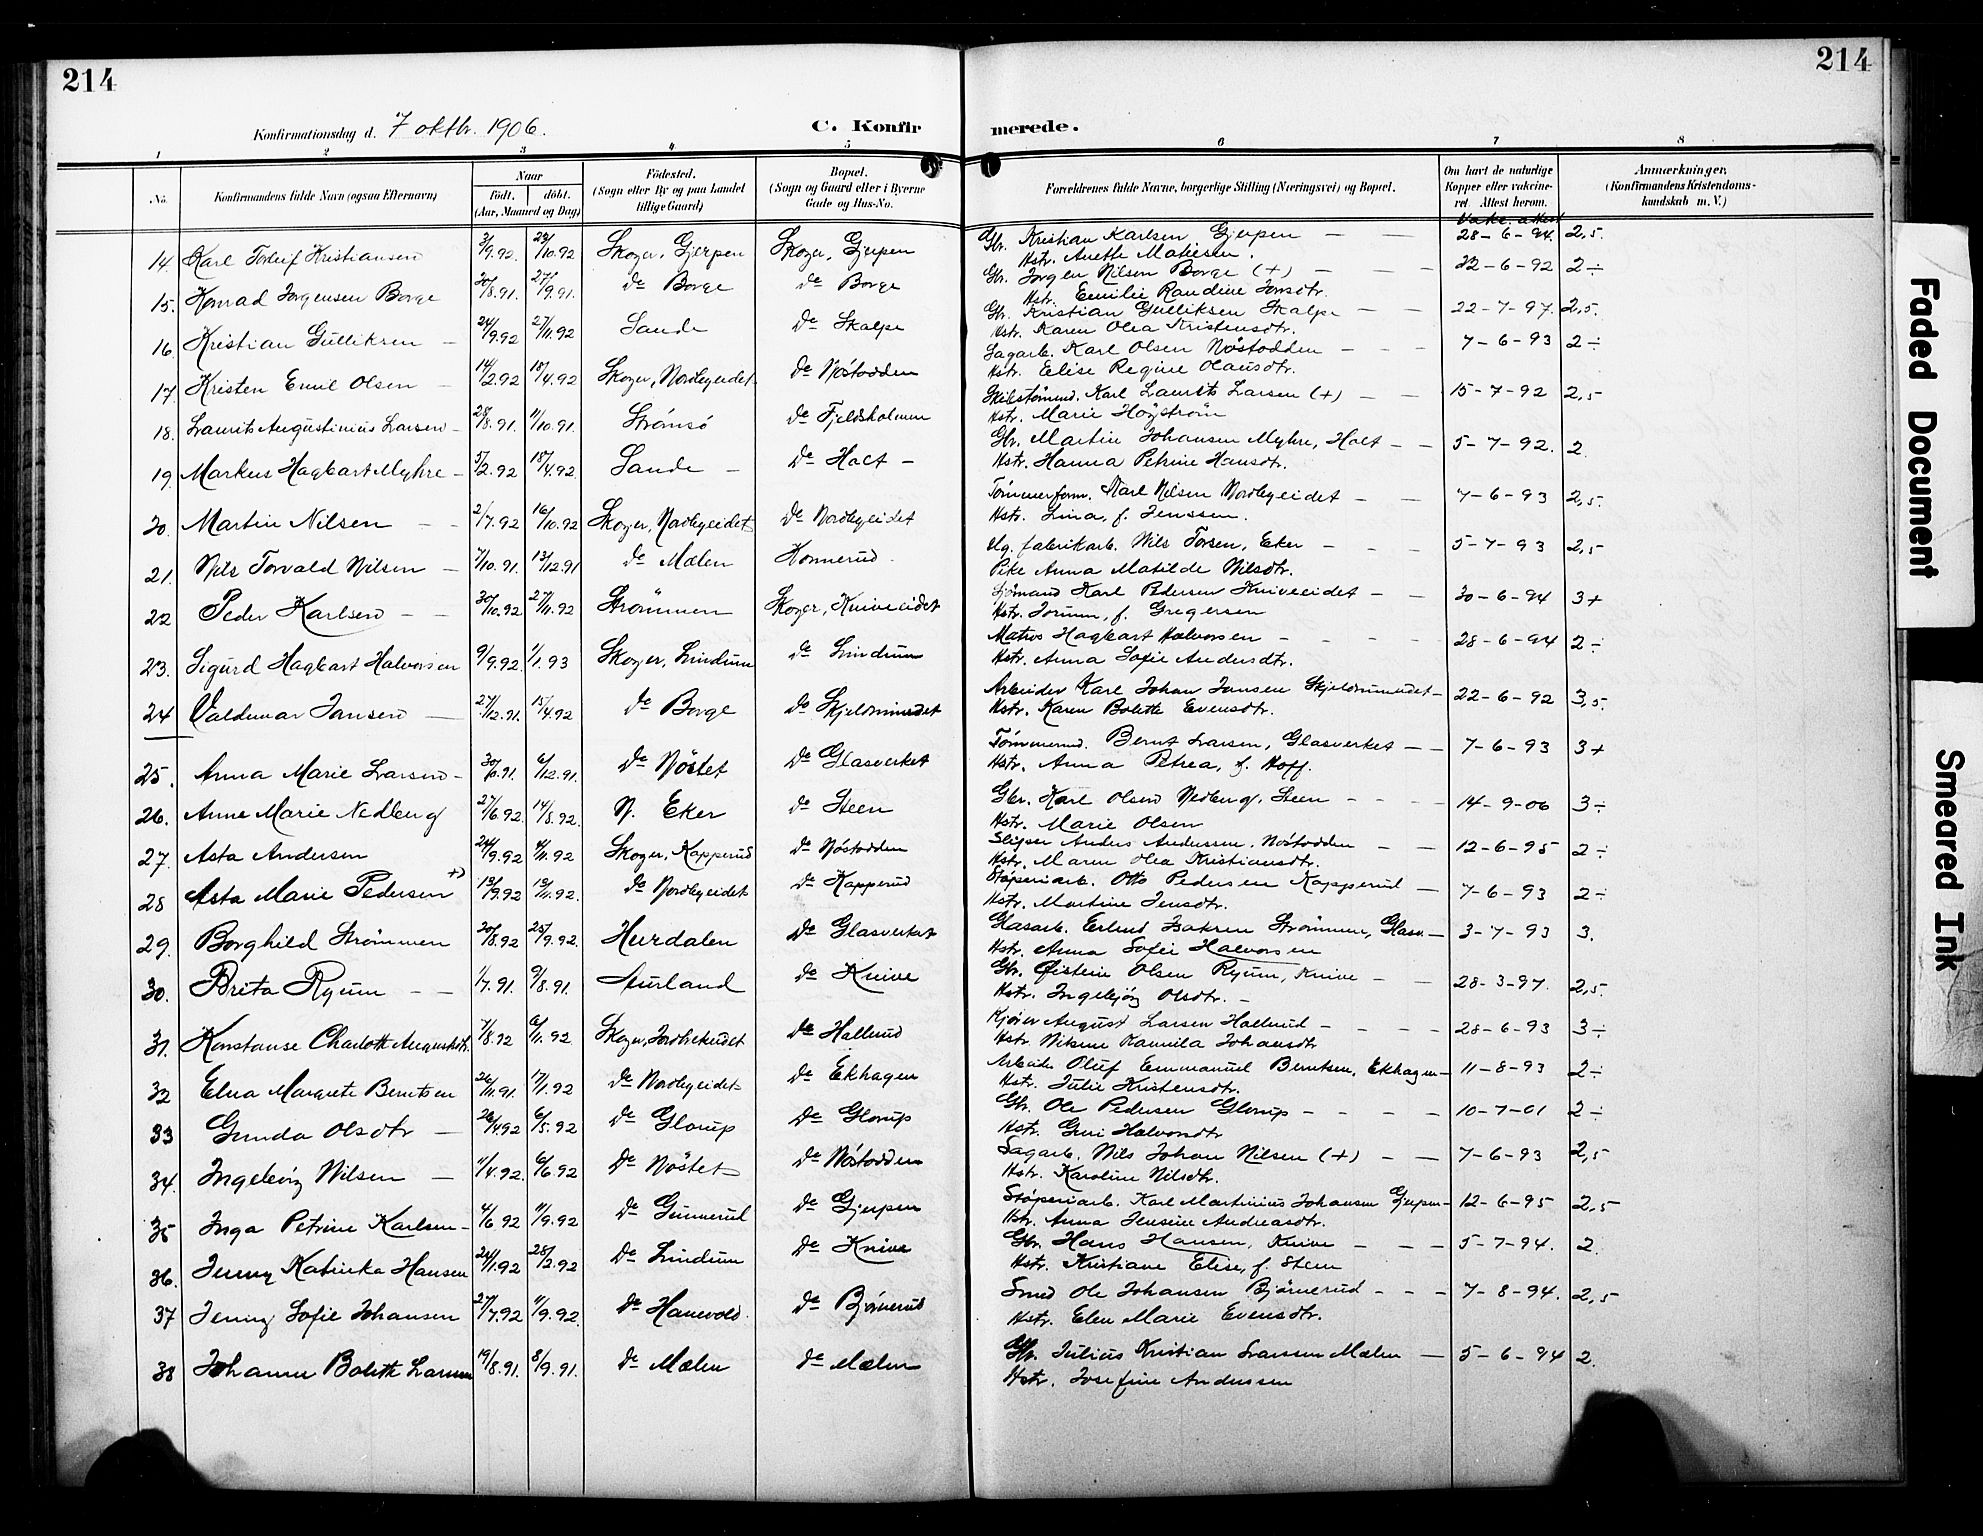 214
214
Konfirmationsdag d. 7 oktbr. 1906.
C. Konfir
merede.
1 2 3 4 5 6 7 8
No. Konfirmandens fulde Navn (ogsaa Efternavn) Naar födt. döbt. (Aar, Maaned og Dag) Födested. (Sogn eller By og paa Landet tillige Gaard) Bopæl. (Sogn og Gaard eller i Byerne Gade og Hus-No. Forældrenes fulde Navne, borgerlige Stilling (Næringsvei) og Bopæl. Om havt de naturlige Kopper eller vaccineret. Attest herom. Anmærkninger, (Konfirmandens Kristendomskundskab m. V.)
Vakc. attest
14. Karl Torleif Kristiansen 3/9.92. 23/10.92 Skoger, Gjerpen Skoger, Gjerpen Gbr. Kristian Karlsen Gjerpen — — 28-6-94. 2,5.
Hstr. Anette Matiesen.
15. Konrad Jørgensen Borge 30/8.91. 27/9.91. do Borge do Borge Gbr. Jørgen Nilsen Borge (+) — — 22-6-92 2÷
Hstr. Emilie Randine Jonsdtr.
16. Kristian Gulliksen — 24/9.92 27/11.92 Sande do Skalpe Gbr. Kristian Gulliksen Skalpe — — 22-7-97. 2,5.
Hstr. Karen Olea Kristensdtr.
17. Kristen Emil Olsen — 14/2.92 18/4.92 Skoger, Nordbyeidet do Nøstodden Sagarb. Karl Olsen Nøstodden — — — 7-6-93 2÷
Hstr. Elise Regine Olausdtr.
18. Laurits Augustinius Larsen — 28/8.91. 11/10.91. Strømsö do Fjeldsholmen Skibstømmd. Karl Laurits Larsen (+) — — 15-7-92 2,5
Hstr. Marie Høgstrøm
19. Markus Hagbart Myhre — 5/2.92 18/4.92 Sande — do Holt — Gbr. Martin Johansen Myhre, Holt — — 5-7-92. 2.
Hstr. Hanna Petrine Hansdtr.
20. Martin Nilsen — — 2/7.92 16/10.92 Skoger, Nordbyeidet do Nordbyeidet Tømmerform. Karl Nilsen Nordbyeidet — — 7-6-93 2,5.
Hstr. Lina, f. Jenssen.
21. Nils Torvald Nilsen — 7/10.91. 13/12.91 do Mælen Konnerud. Ug. fabrikarb. Nils Torsen, Eker — — — 5-7-93 2,5
Pike Anna Matilde Nilsdtr.
22 Peder Karlsen — — 30/10.92 27/11.92 Strømmen Skoger, Kniveeidet Sjømand Karl Pedersen Kniveeidet — — 30-6-94 3+
Hstr. Jorunn, f. Gregersen
23. Sigurd Hagbart Halvorsen 9/9.92. 1/1.93 Skoger, Lindum do Lindum Matros Hagbart Halvorsen — — — — 28-6-94 2÷
Hstr. Anna Sofie Andersdtr.
24 Valdemar Jansen — 27/12.91. 15/4.92 do Borge do Skjeldrumeidet Arbeider Karl Johan Jansen Skjeldrumeidet — 22-6-92 3,5.
Hstr. Karen Bolette Evensdtr.
25. Anna Marie Larsen — 30/6.91. 6/12.91. do Nöstet do Glasverket Tømmermd. Bernt Larsen, Glasverket — — 7-6-93 3+
Hstr. Anna Petrea, f. Hoff.
26. Anne Marie Nedberg 27/6.92. 14/8.92. N. Eker do Steen Gbr. Karl Olsen Nedberg, Steen — — — — 14-9-06 3÷
Hstr. Marie Olsen
27. Asta Andersen 24/9.92 4/11.92 Skoger, Kapperud do Nøstodden Sliper Anders Andersen, Nøstodden — — 12-6-95 2÷
Hstr. Maren Olea Kristiansdtr.
28 Asta Marie Pedersen +) 13/9.92 13/11.92. do Nordbyeidet do Kapperud Støperiarb. Otto Pedersen Kapperud — 7-6-93 2÷
Hstr. Martine Jensdtr.
29. Borghild Strømmen 20/8.92 25/9.92. Hurdalen do Glasverket Glasarb. Erlend Isaksen Strømmen, Glasv. — 3-7-93 3.
Hstr. Anna Sofie Halvorsen
30. Brita Ryum — — 1/7.91. 9/8.91. Aurland do Knive Gbr. Øistein Olsen Ryum, Knive — — 28-3-97. 2,5.
Hstr. Ingebjørg Olsdtr. —
31. Konstanse Charlotte Augustsdtr. 7/8.92 6/11.92 do Hallerud Kjører August Larsen Hallerud — — — — 28-6-93 3÷
Hstr. Nikoline Kamilla Johansdtr
32 Elna Margrete Berntsen 26/11.91. 17/1.92 do Nordbyeidet do Ekhagen Arbeider Oluf Emmanuel Berntsen, Ekhagen — 11-8-93 2÷
Hstr. Julie Kristensdtr.
33 Gunda Olsdtr — 26/4.92 6/5.92 do Glorup do Glorup Gbr. Ole Pedersen Glorup — — — — 10-7-01 2÷
Hstr. Guri Halvorsdtr
34. Ingeborg Nilsen — 11/4.92. 6/6.92 do Nöstet do Nøstodden Sagarb. Nils Johan Nilsen (+) — — 7-6-93 2,5
Hstr. Karoline Nilsdtr.
35 Inga Petrine Karlsen — 4/6 92 11/9.92 do Gunnerud do Gjerpen Støperiarb. Karl Martinius Johansen Gjerpen — 12-6-95 2,5
Hstr. Anna Jensine Andreasdtr.
36. Jenny Katinka Hansen 24/1.92 28/2.92 do Lindum do Knive Gbr. Hans Hansen, Knive — — — 5-7-94. 2.
Hstr. Kristiane Elise, f. Steen
37 Jenny Sofie Johansen 27/7.92 11/9.92. do Hanevold. do Bjørnerud Smed Ole Johansen Bjørnerud — — — 7-8-94. 2,5
Hstr. Elen Marie Evensdtr.
38 Johanne Bolette Larsen 19/8.91. 8/9.91. do Mælen do Mælen Gbr. Julius Kristian Larssen Mælen — 5-6-94 2.
Hstr. Josefine Anderssen
Faded Document
Smeared Ink